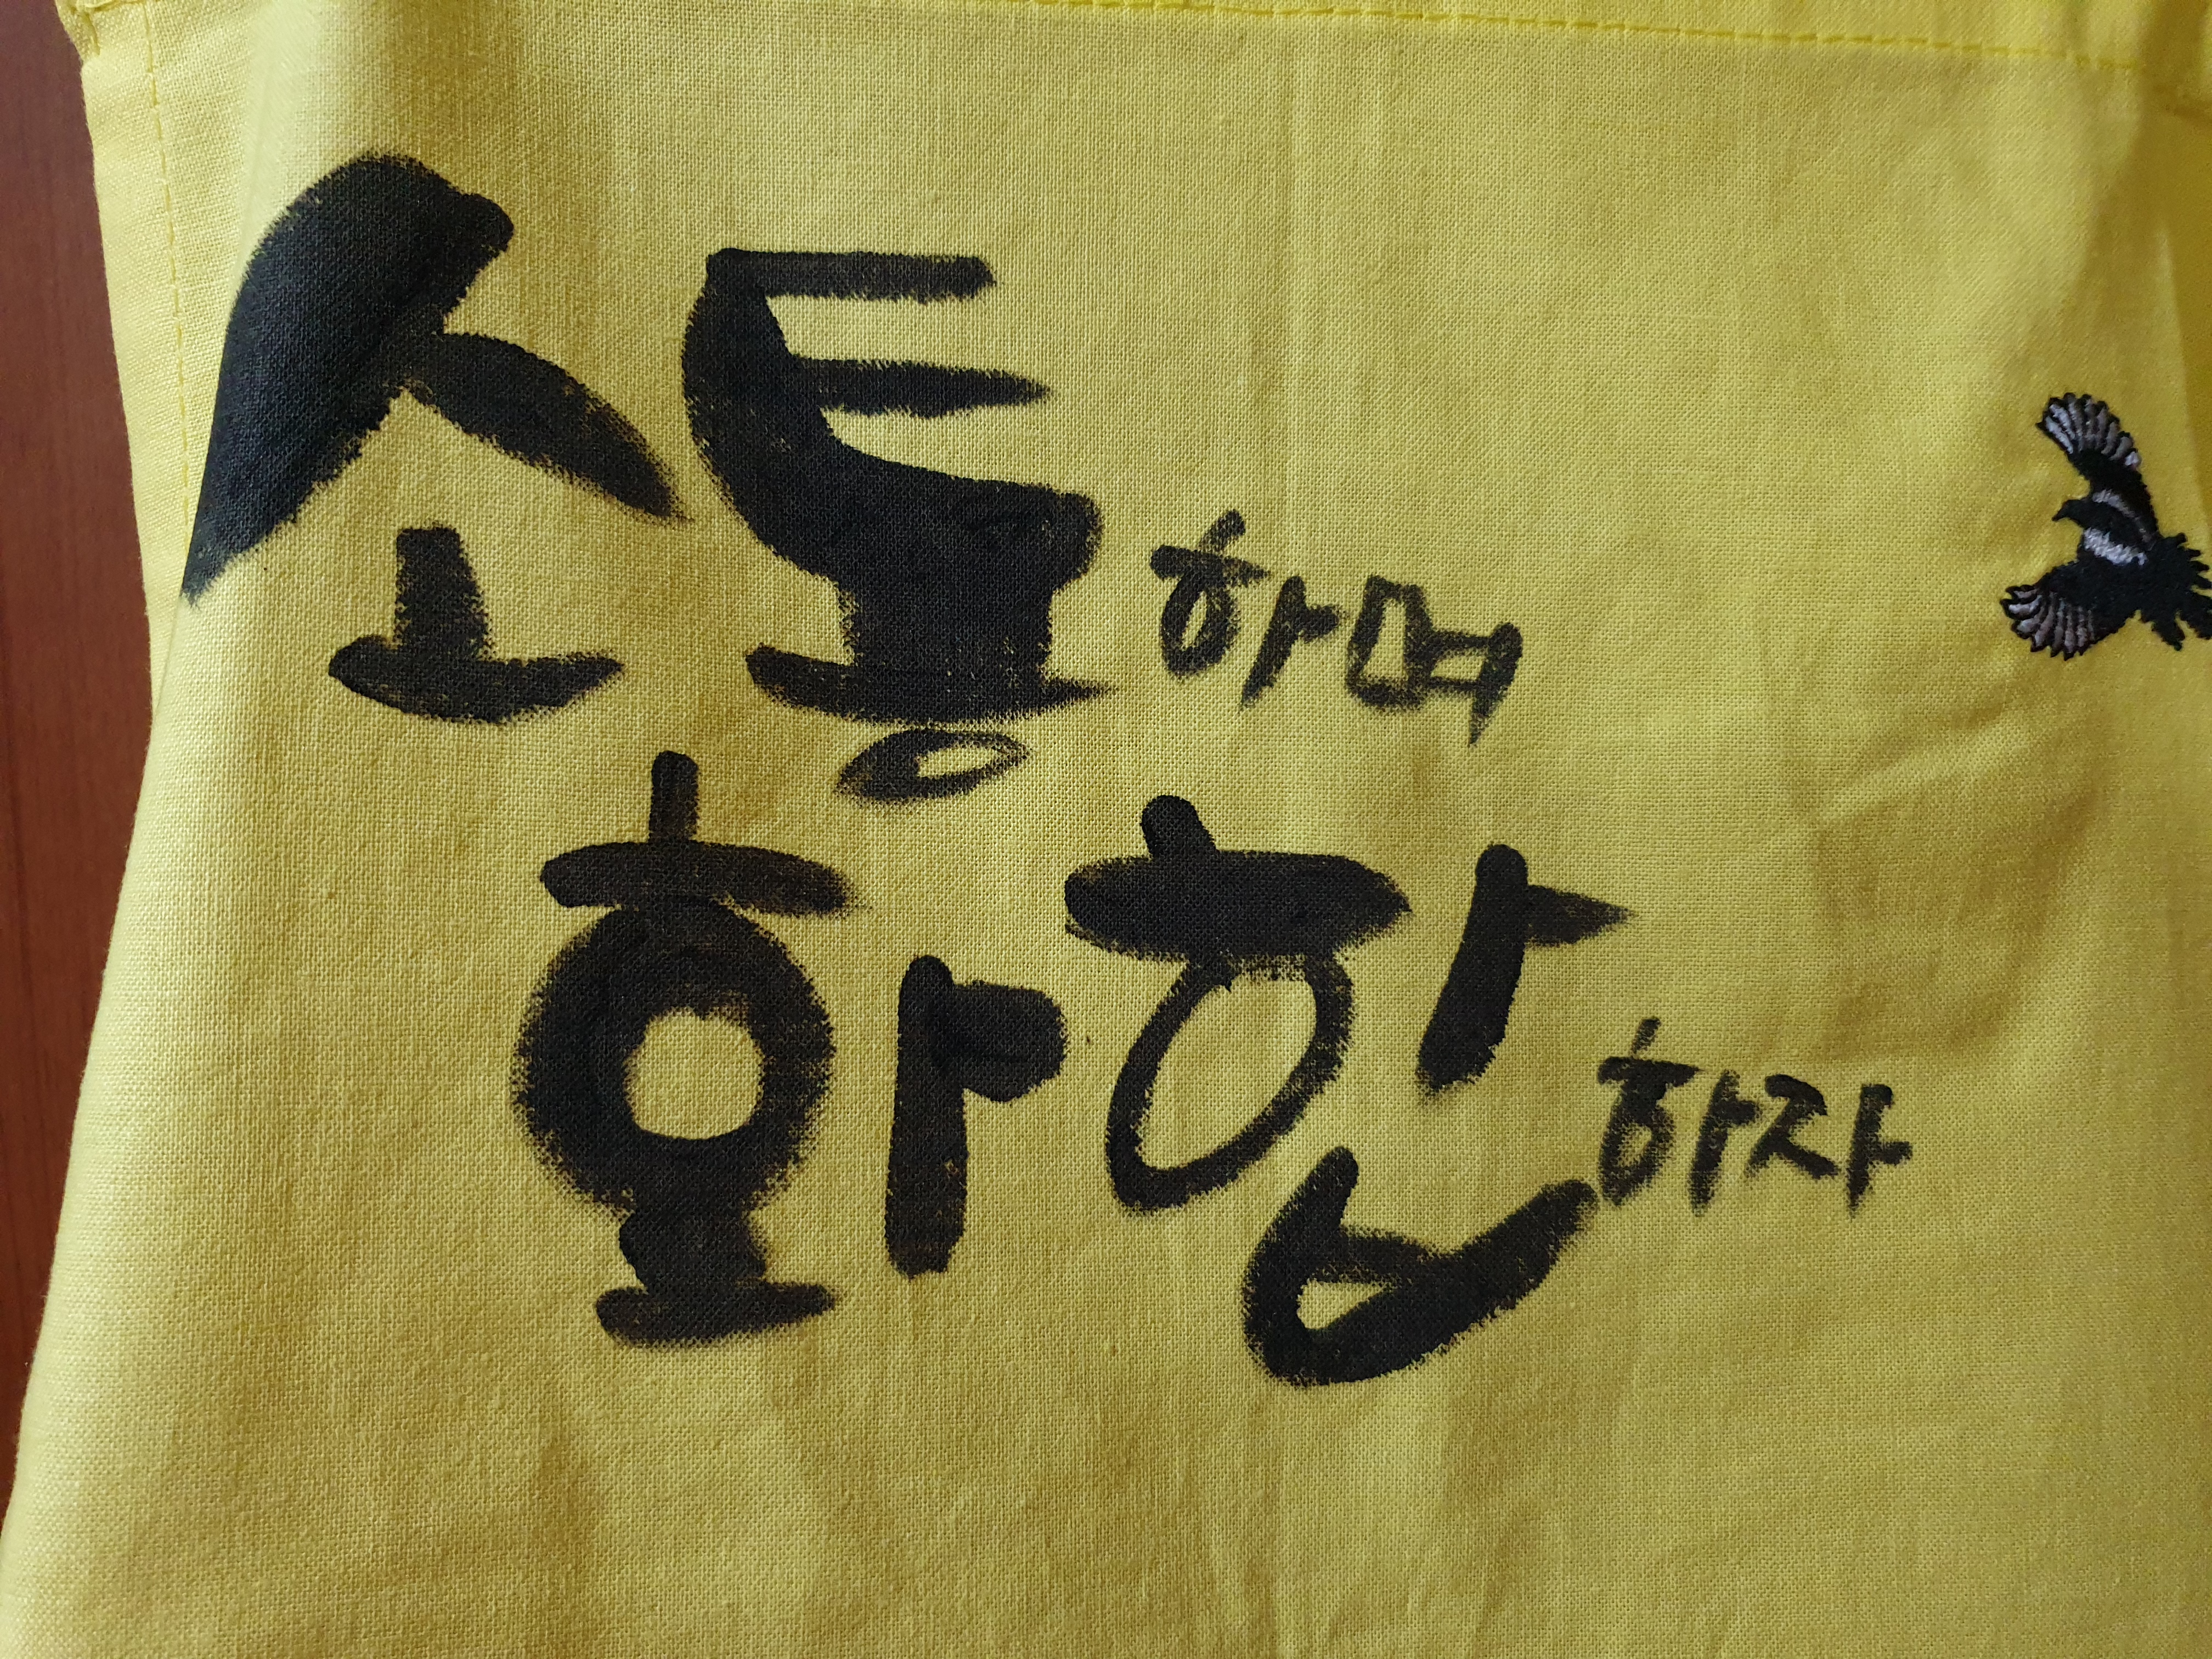 소통하며
화합하자